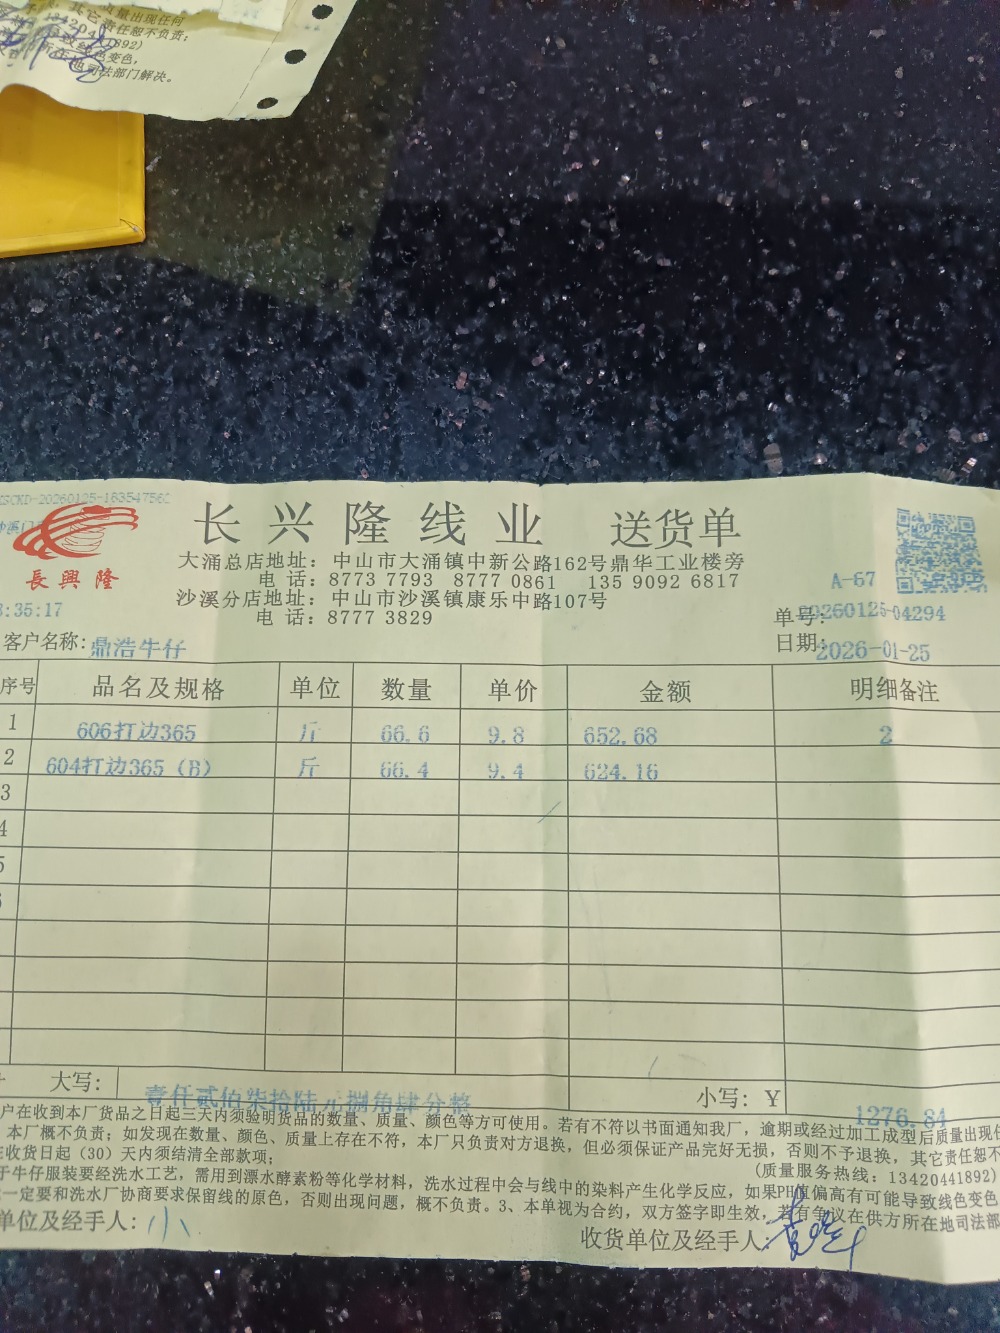 量出现任何
其它责任恕不负责;
变色,
所在地司法部门解决。
长兴隆线业 送货单
長興隆
大涌总店地址: 中山市大涌镇中新公路162号鼎华工业楼旁
电 话: 8773 7793 8777 0861 135 9092 6817
沙溪分店地址: 中山市沙溪镇康乐中路107号
电 话: 8777 3829
A-67
:35:17
单号: 20260125-04294
客户名称: 鼎浩牛仔
日期: 2026-01-25
序号 品名及规格 单位 数量 单价 金额 明细备注
1 606打边365 斤 66.6 9.8 652.68 2
2 604打边365 (B) 斤 66.4 9.4 624.16
3
4
5
大写: 壹仟贰佰柒拾陆元捌角肆分整 小写: Y 1276.84
户在收到本厂货品之日起三天内须验明货品的数量、质量、颜色等方可使用。若有不符以书面通知我厂, 逾期或经过加工成型后质量出现任
本厂概不负责; 如发现在数量、颜色、质量上存在不符, 本厂只负责对方退换, 但必须保证产品完好无损, 否则不予退换, 其它责任恕不
收货日起 (30) 天内须结清全部款项;
(质量服务热线: 13420441892)
于牛仔服装要经洗水工艺, 需用到漂水酵素粉等化学材料, 洗水过程中会与线中的染料产生化学反应, 如果PH值偏高有可能导致线色变色
一定要和洗水厂协商要求保留线的原色, 否则出现问题, 概不负责。3、本单视为合约, 双方签字即生效, 若有争议在供方所在地司法部
单位及经手人: 小
收货单位及经手人: